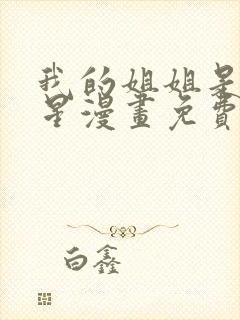 我的姐姐是
星漫畫免費
白鑫